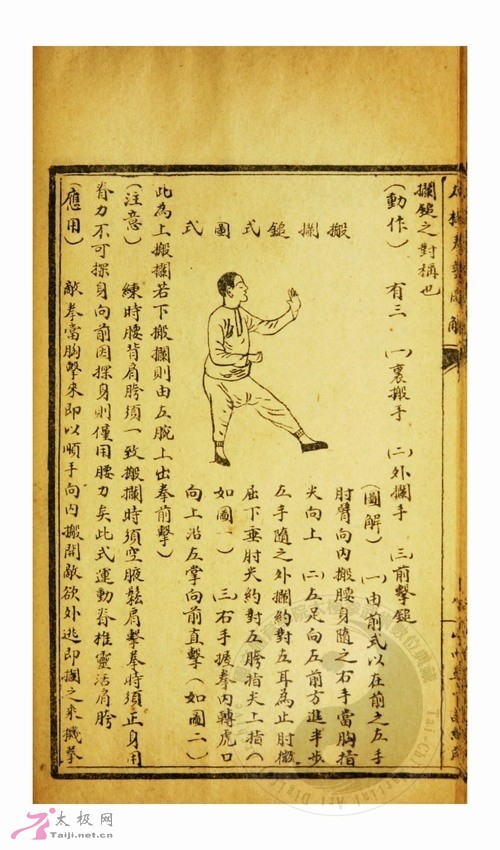 攔鎚之對稱也
(動作) 有三 (一)裏搬手 (二)外攔手 (三)前擊鎚
搬攔鎚式圖式
(圖解) (一)由前式以在前之左手
肘臂向內搬腰身隨之右手當胸指
尖向上 (二)左足向左前方進半步
左手隨之外攔約對左耳為止肘微
屈下垂肘尖約對左胯指尖上指(
如圖一) (三)右手握拳內轉虎口
向上沿左掌向前直擊(如圖二)
此為上搬攔若下搬攔則由左腕上出拳前擊)
(注意) 練時腰背肩胯須一致搬攔時須空腋鬆肩擊拳時須正身用
脊力不可探身向前因探身則僅用腰力矣此式運動脊椎靈活肩胯
(應用) 敵拳當胸擊來即以順手向內搬開敵欲外逃即攔之來拳
太极网
Taiji.net.cn